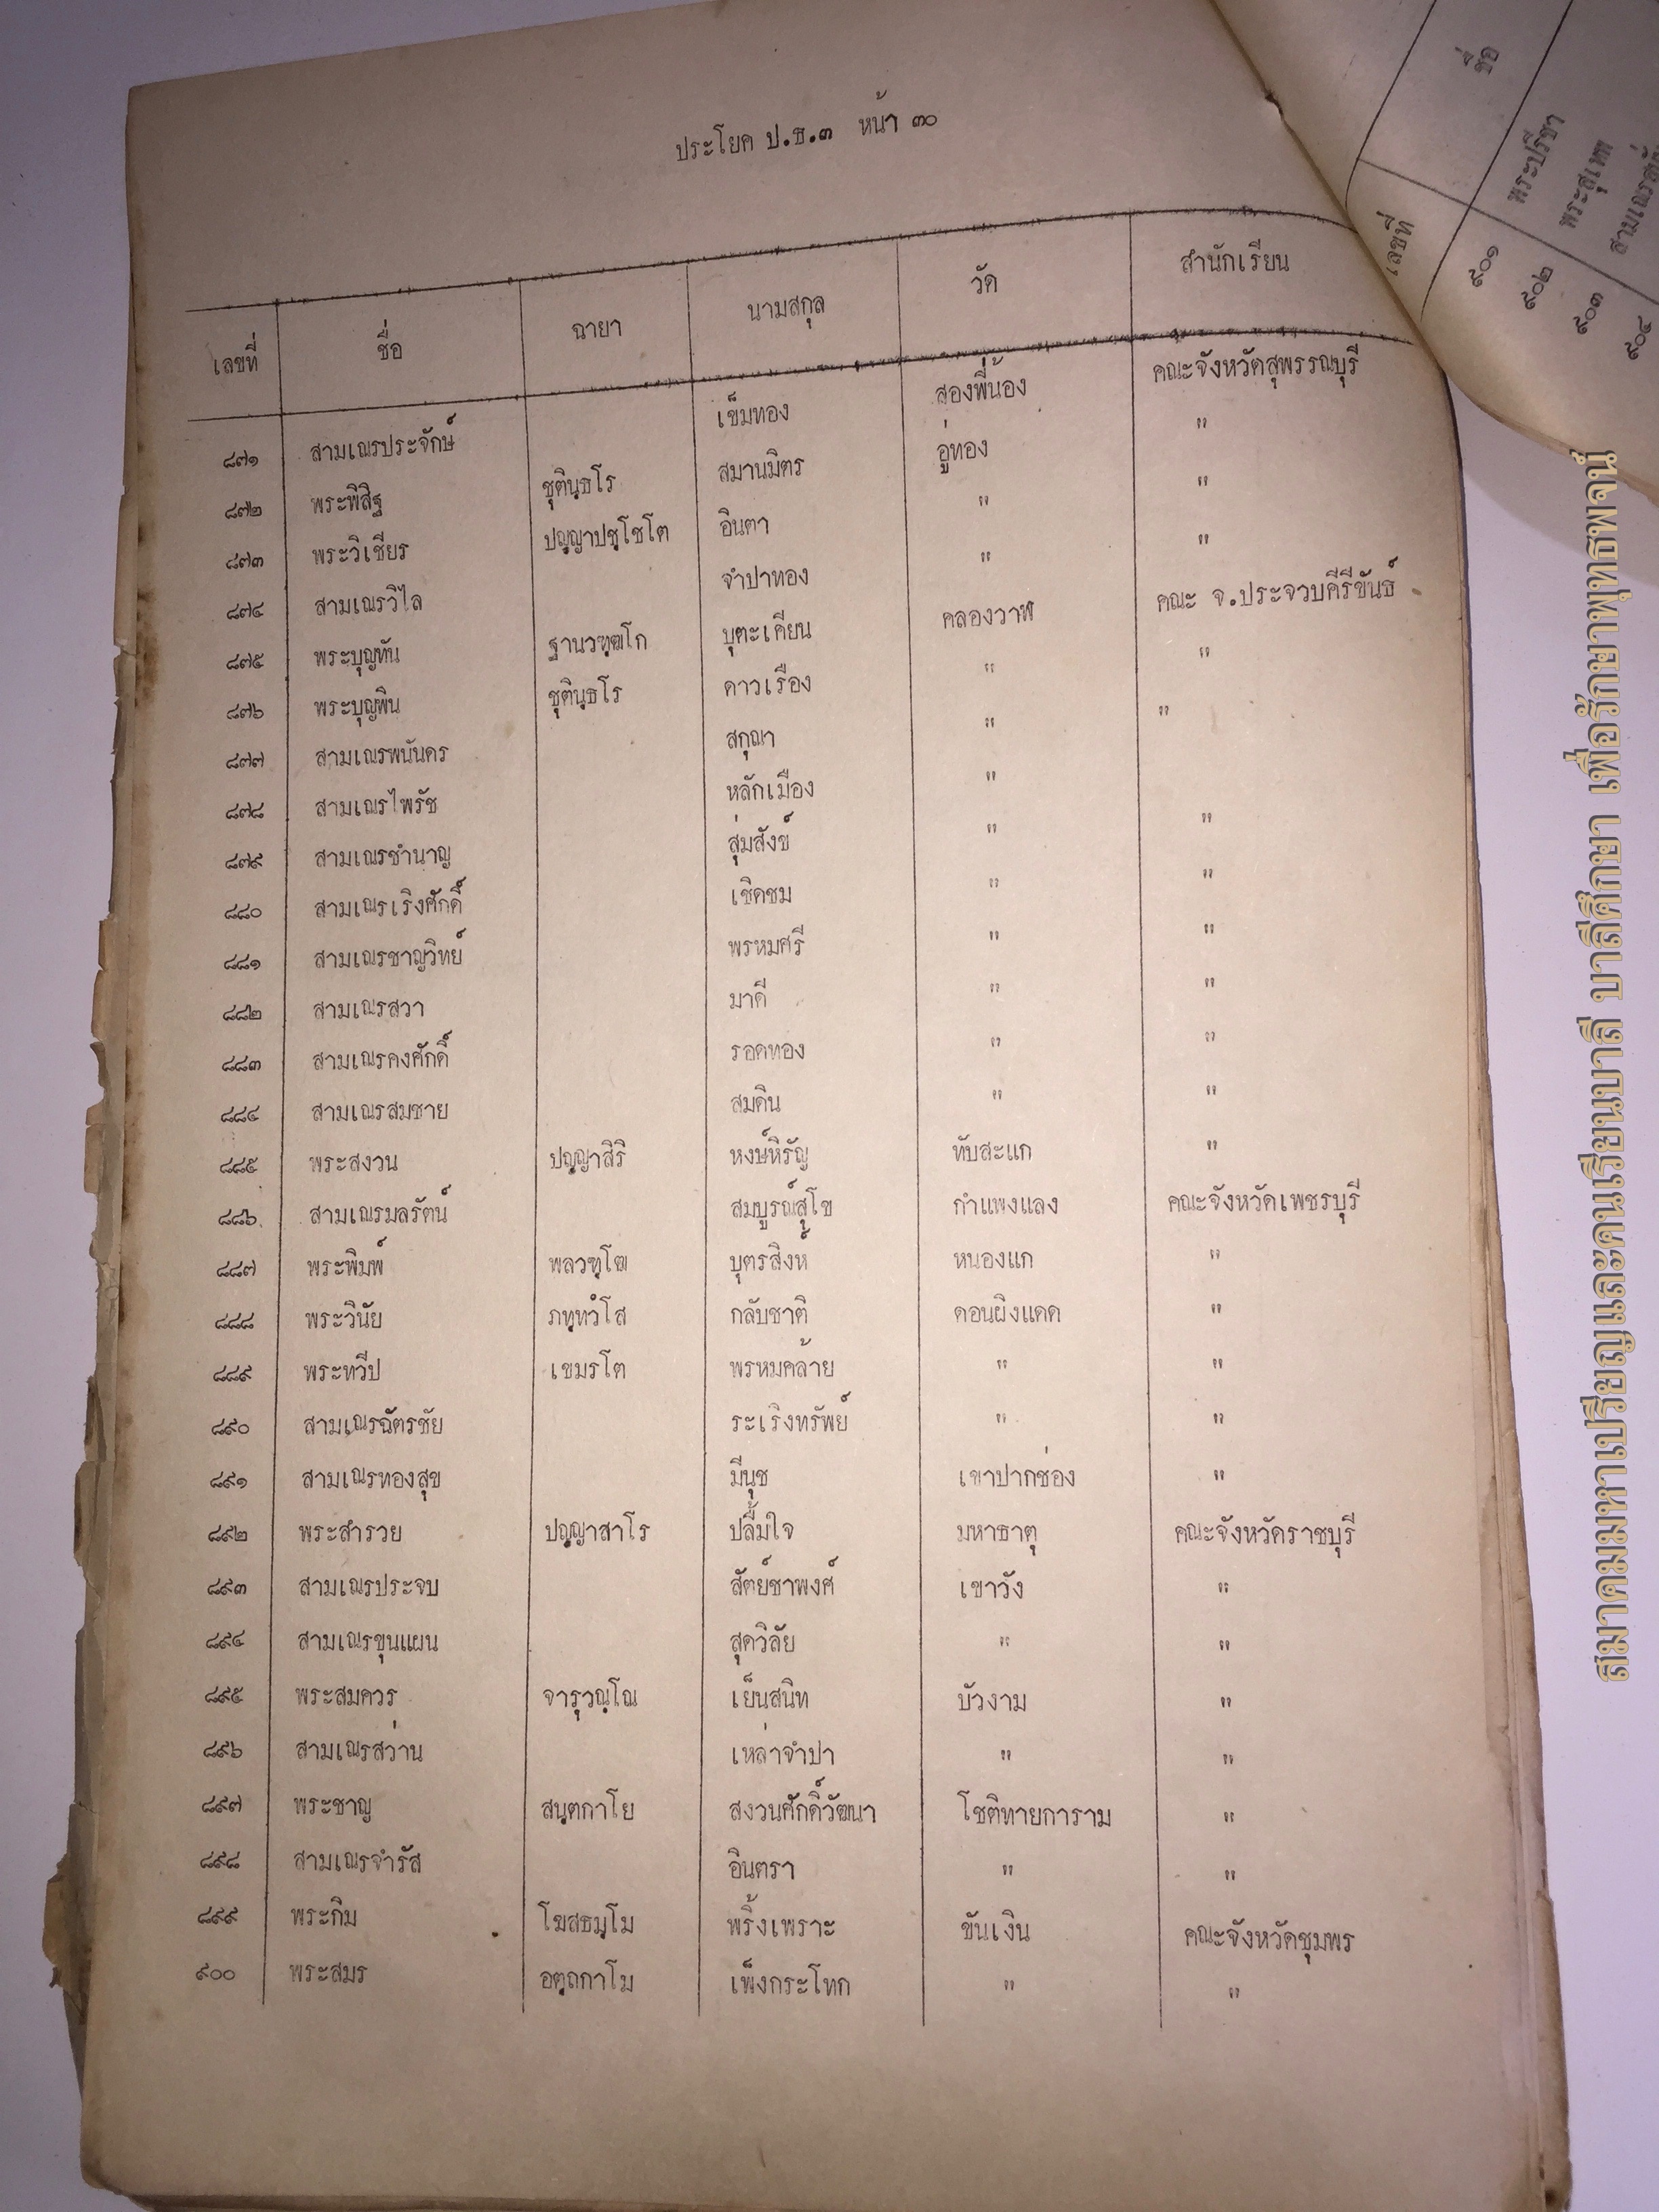 ประโยค ป.ธ.๓ หน้า ๓๐
เลขที่ ชื่อ ฉายา นามสกุล วัด สำนักเรียน
๘๗๑ สามเณรประจักษ์ เข็มทอง สองพี่น้อง คณะจังหวัดสุพรรณบุรี
๘๗๒ พระพิสิฐ ชุตินฺธโร สมานมิตร อู่ทอง "
๘๗๓ พระวิเชียร ปญฺญาปชฺโชโต อินตา " "
๘๗๔ สามเณรวิไล จำปาทอง " "
๘๗๕ พระบุญทัน ฐานวฑฺฒโก บุตะเคียน คลองวาฬ คณะ จ.ประจวบคีรีขันธ์
๘๗๖ พระบุญพิน ชุตินฺธโร ดาวเรือง " "
๘๗๗ สามเณรพนันดร สกุณา " "
๘๗๘ สามเณรไพรัช หลักเมือง "
๘๗๙ สามเณรชำนาญ สุ่มสังข์ " "
๘๘๐ สามเณรเริงศักดิ์ เชิดชม " "
๘๘๑ สามเณรชาญวิทย์ พรหมศรี " "
๘๘๒ สามเณรสวา มาดี " "
๘๘๓ สามเณรคงศักดิ์ รอดทอง " "
๘๘๔ สามเณรสมชาย สมดิน " "
๘๘๕ พระสงวน ปญฺญาสิริ หงษ์หิรัญ ทับสะแก "
๘๘๖ สามเณรมลรัตน์ สมบูรณ์สุโข กำแพงแลง คณะจังหวัดเพชรบุรี
๘๘๗ พระพิมพ์ พลวฑฺโฒ บุตรสิงห์ หนองแก "
๘๘๘ พระวินัย ภทฺทวํโส กลับชาติ ดอนผิงแดด "
๘๘๙ พระทวีป เขมรโต พรหมคล้าย " "
๘๙๐ สามเณรฉัตรชัย ระเริงทรัพย์ " "
๘๙๑ สามเณรทองสุข มีนุช เขาปากช่อง "
๘๙๒ พระสำรวย ปญฺญาสาโร ปลื้มใจ มหาธาตุ คณะจังหวัดราชบุรี
๘๙๓ สามเณรประจบ สัตย์ชาพงศ์ เขาวัง "
๘๙๔ สามเณรขุนแผน สุดวิลัย " "
๘๙๕ พระสมควร จารุวณฺโณ เย็นสนิท บัวงาม "
๘๙๖ สามเณรสว่าน เหล่าจำปา " "
๘๙๗ พระชาญ สนฺตกาโย สงวนศักดิ์วัฒนา โชติทายการาม "
๘๙๘ สามเณรจำรัส อินตรา " "
๘๙๙ พระกิม โฆสธมฺโม พริ้งเพราะ ขันเงิน คณะจังหวัดชุมพร
๙๐๐ พระสมร อตฺถกาโม เพ็งกระโทก " "
เลขที่ ชื่อ
๙๐๑ พระปรีชา
๙๐๒ พระสุเทพ
๙๐๓
๙๐๔
สมาคมมหาเปรียญและคนเรียนบาลี บาลีศึกษา เพื่อรักษาพุทธพจน์